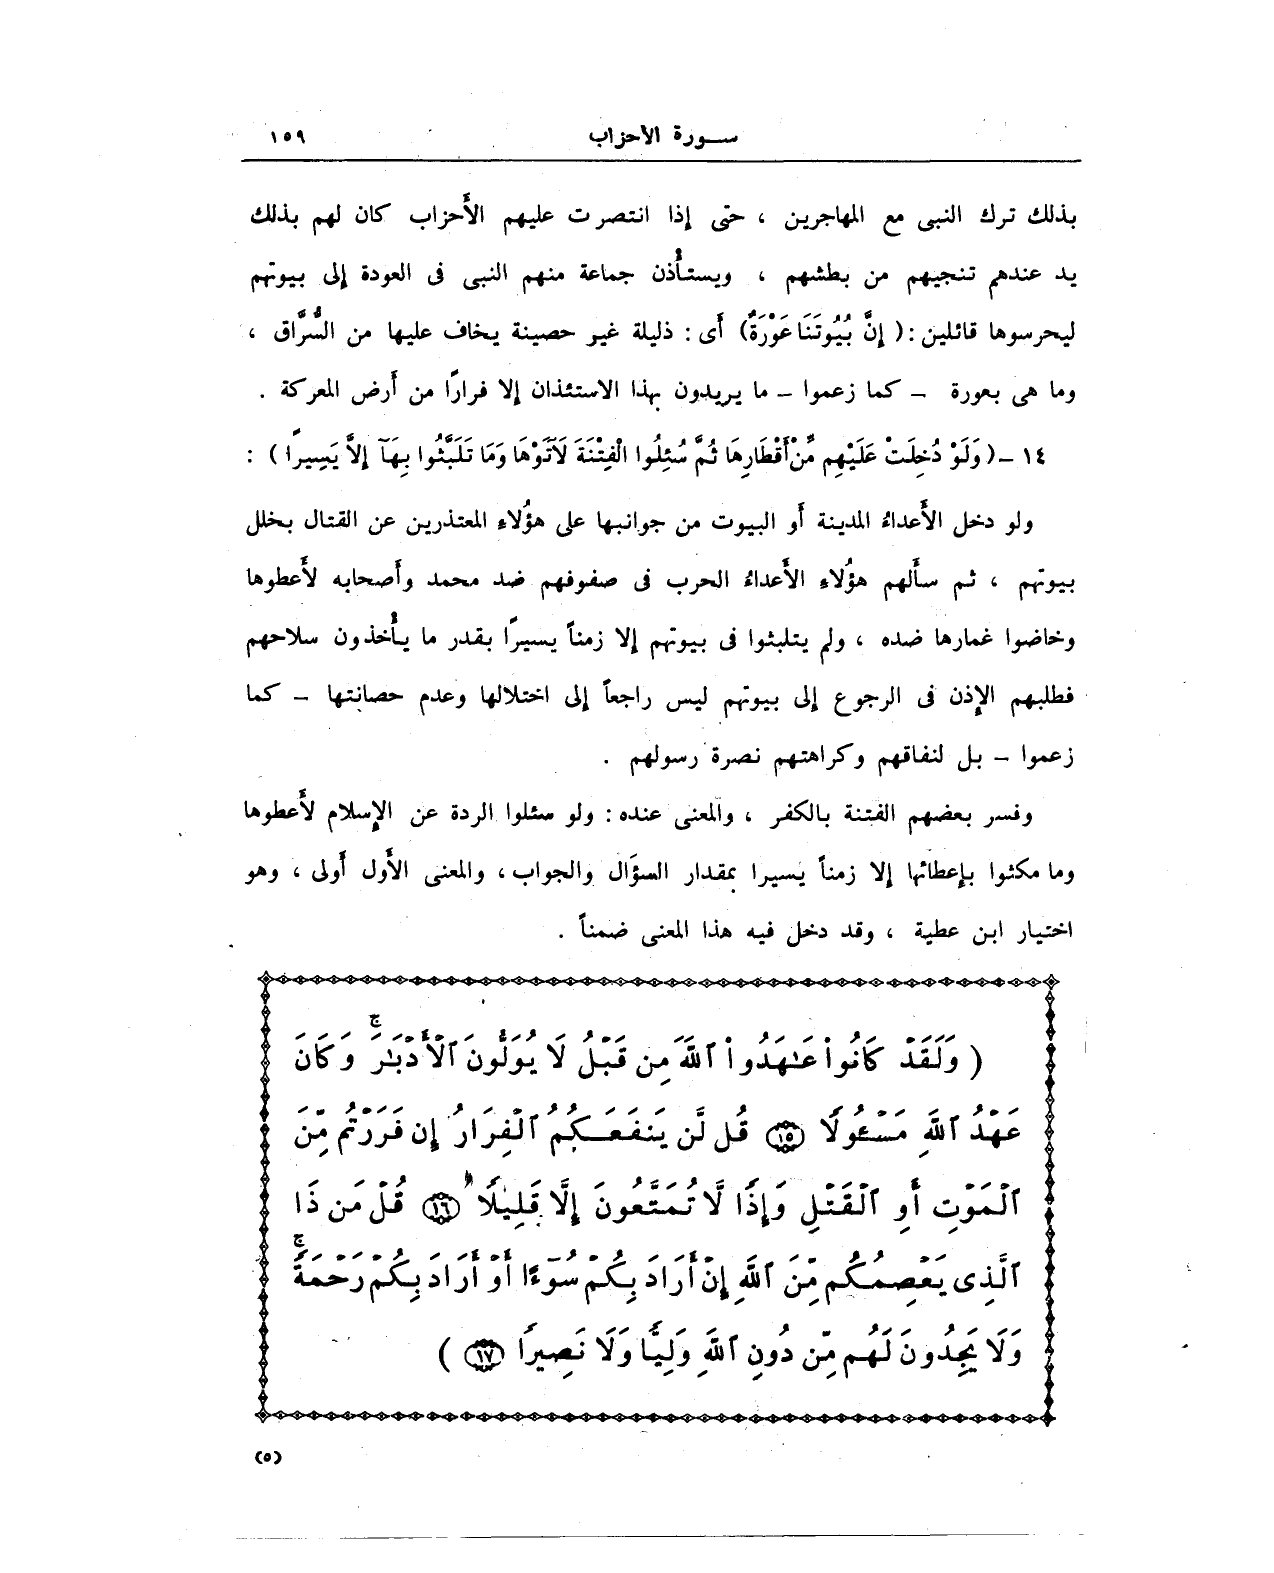 سورة الأحزاب ١٥٩
بذلك ترك النبى مع المهاجرين ، حتى إذا انتصرت عليهم الأَحزاب كان لهم بذلك
يد عندهم تنجيهم من بطشهم ، ويستأْذن جماعة منهم النبى فى العودة إلى بيوتهم
ليحرسوها قائلين : ( إِنَّ بُيُوتَنَا عَوْرَةٌ) أَى : ذليلة غير حصينة يخاف عليها من السُّرَّاق ،
وما هى بعورة – كما زعموا – ما يريدون بهذا الاستئذان إلا فرارًا من أَرض المعركة .
١٤ – ( وَلَوْ دُخِلَتْ عَلَيْهِم مِّنْ أَقْطَارِهَا ثُمَّ سُئِلُوا الْفِتْنَةَ لَآتَوْهَا وَمَا تَلَبَّثُوا بِهَآ إِلاَّ يَسِيرًا ) :
ولو دخل الأَعداءُ المدينة أَو البيوت من جوانبها على هؤُلاءِ المعتذرين عن القتال بخلل
بيوتهم ، ثم سأَلهم هؤُلاءِ الأَعداءُ الحرب فى صفوفهم ضد محمد وأَصحابه لأَعطوها
وخاضوا غمارها ضده ، ولم يتلبثوا فى بيوتهم إلا زمناً يسيرًا بقدر ما يأْخذون سلاحهم
فطلبهم الإِذن فى الرجوع إلى بيوتهم ليس راجعاً إلى اختلالها وعدم حصانتها – كما
زعموا – بل لنفاقهم وكراهتهم نصرة رسولهم .
وفسر بعضهم الفتنة بالكفر ، والمعنى عنده : ولو سئلوا الردة عن الإِسلام لأَعطوها
وما مكثوا بإِعطائها إلا زمناً يسيرا بمقدار السؤَال والجواب ، والمعنى الأَول أَولى ، وهو
اختيار ابن عطية ، وقد دخل فيه هذا المعنى ضمناً .
( وَلَقَدْ كَانُوا۟ عَـٰهَدُوا۟ ٱللَّهَ مِن قَبْلُ لَا يُوَلُّونَ ٱلْأَدْبَـٰرَ ۚ وَكَانَ
عَهْدُ ٱللَّهِ مَسْـُٔولًا ١٥ قُل لَّن يَنفَعَكُمُ ٱلْفِرَارُ إِن فَرَرْتُم مِّنَ
ٱلْمَوْتِ أَوِ ٱلْقَتْلِ وَإِذًا لَّا تُمَتَّعُونَ إِلَّا قَلِيلًا ١٦ قُلْ مَن ذَا
ٱلَّذِى يَعْصِمُكُم مِّنَ ٱللَّهِ إِنْ أَرَادَ بِكُمْ سُوٓءًا أَوْ أَرَادَ بِكُمْ رَحْمَةً ۚ
وَلَا يَجِدُونَ لَهُم مِّن دُونِ ٱللَّهِ وَلِيًّا وَلَا نَصِيرًا ١٧ )
(٥)